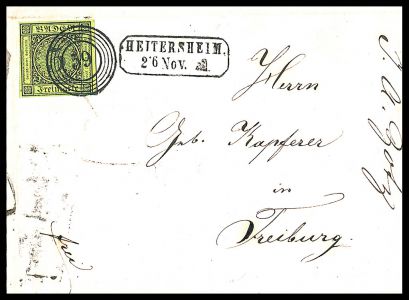 BADEN.
59
Freimarke
HEITERSHEIM.
26 Nov.
Herrn
Geb. Kapferer
in
Freiburg.
frei